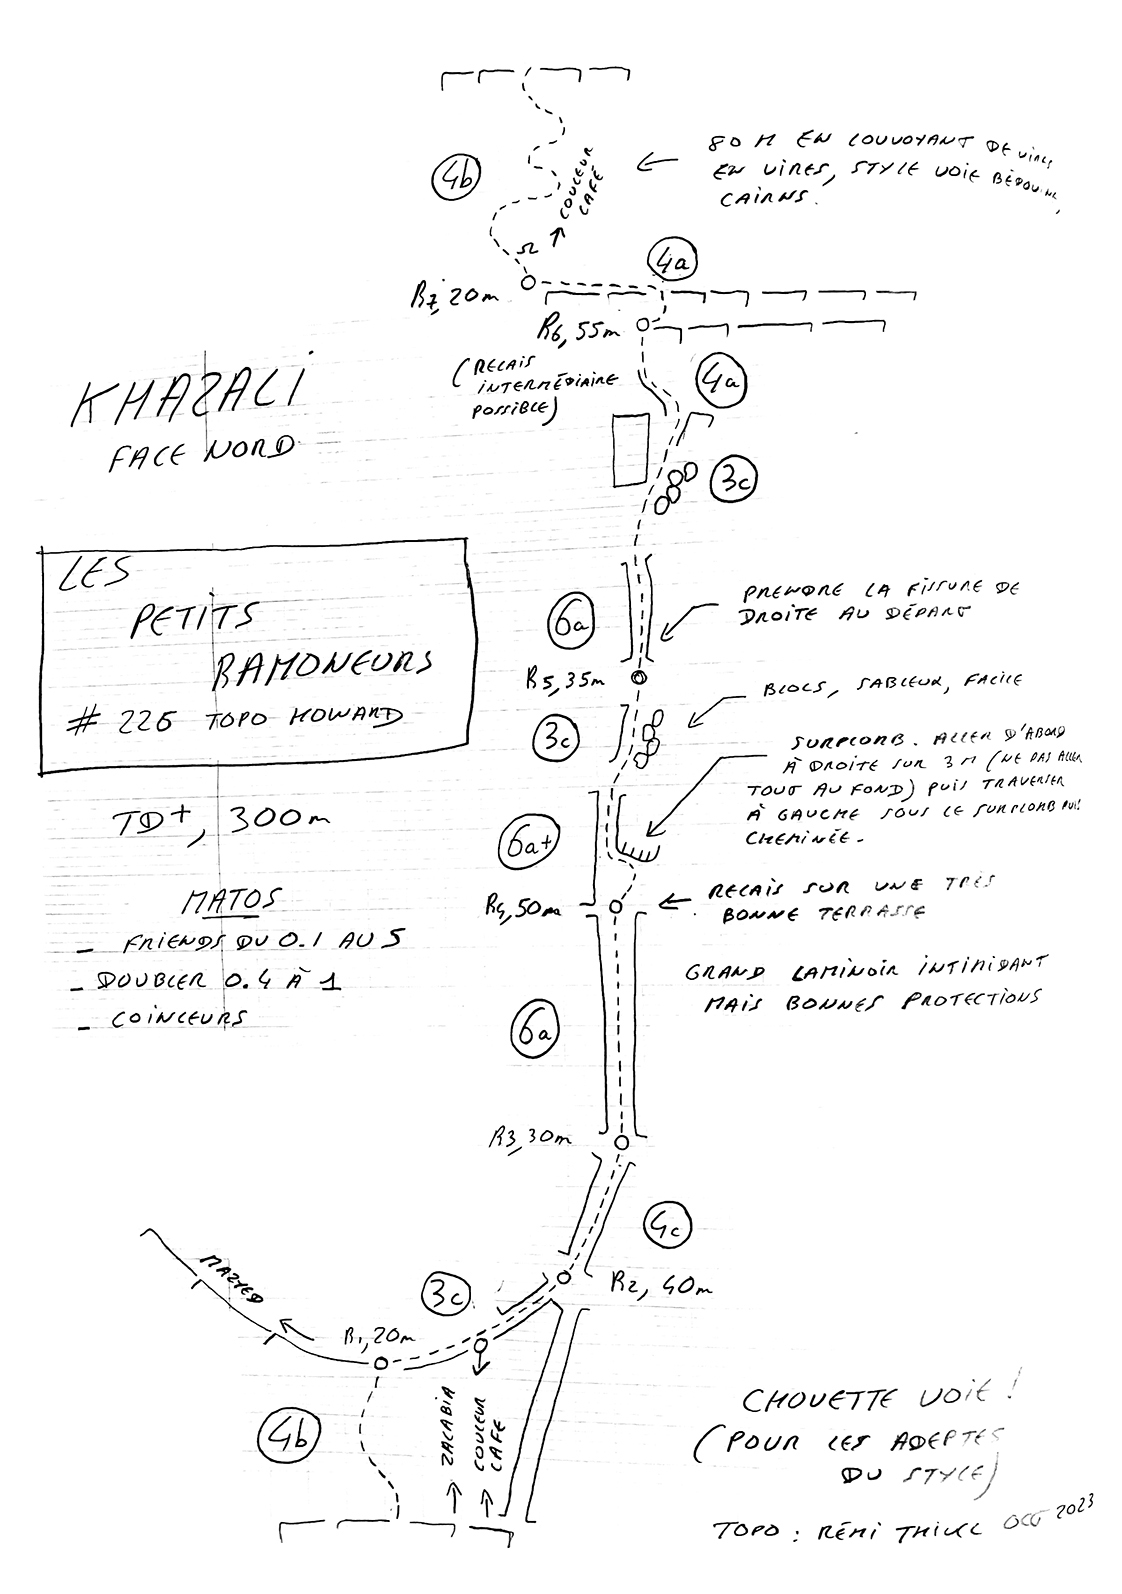 80 M EN LOUVOYANT DE VIRES
EN VIRES, STYLE VOIE BÉDOUINE,
CAIRNS.
4b
COULEUR
CAFÉ
4a
R7, 20m
R6, 55m
(RELAIS
INTERMÉDIAIRE
POSSIBLE)
4a
KHAZALI
FACE NORD
3c
LES
PETITS
RAMONEURS
# 226 TOPO HOWARD
PRENDRE LA FISSURE DE
DROITE AU DÉPART
6a
R5, 35m
BLOCS, SABLEUX, FACILE
3c
SURPLOMB. ALLER D'ABORD
À DROITE SUR 3M (NE PAS ALLER
TOUT AU FOND) PUIS TRAVERSER
À GAUCHE SOUS LE SURPLOMB PUIS
CHEMINÉE.
TD+, 300m
6a+
MATOS
- FRIENDS DU 0.1 AU 5
- DOUBLER 0.4 À 1
- COINCEURS
R4, 50m
RELAIS SUR UNE TRÈS
BONNE TERRASSE
GRAND LAMINOIR INTIMIDANT
MAIS BONNES PROTECTIONS
6a
R3, 30m
4c
MAZYED
3c
R2, 40m
R1, 20m
4b
ZALABIA
COULEUR
CAFÉ
CHOUETTE VOIE !
(POUR LES ADEPTES
DU STYLE)
TOPO : RÉMI THIVEL OCT 2023